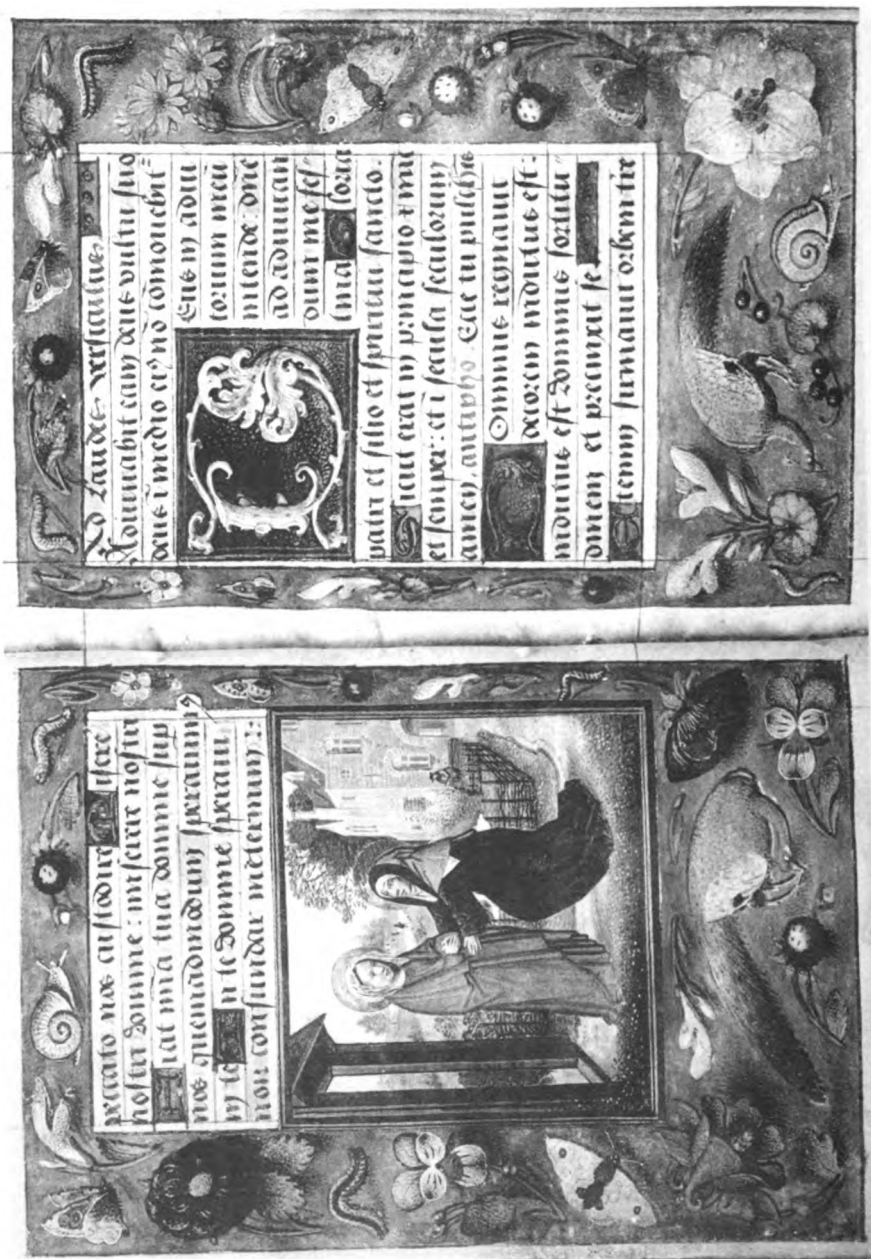 peccato nos custodire Miserē
nostri domine: miserere nostri
Fiat mīa tua domine sup
nos quemadmodum speravimus
in te In te domine speravi
non confundar in eternum:
Ad Laudes, versiculus,
Adiuvabit eam deus vultu suo
deus ī medio eiꝰ nō comovebit~
Deus in adiu
torium meū
intende: dñe
ad adiuvan
dum me fes
tina Gloria
patri et filio et spiritui sancto.
Sicut erat in principio & nūc
et semper: et ī secula seculorum
amen. antipho. Ecce tu pulchra
Dominus regnavit
decorem indutus est:
indutus est dominus fortitu
dinem et precinxit se
Etenim firmavit orbem tre